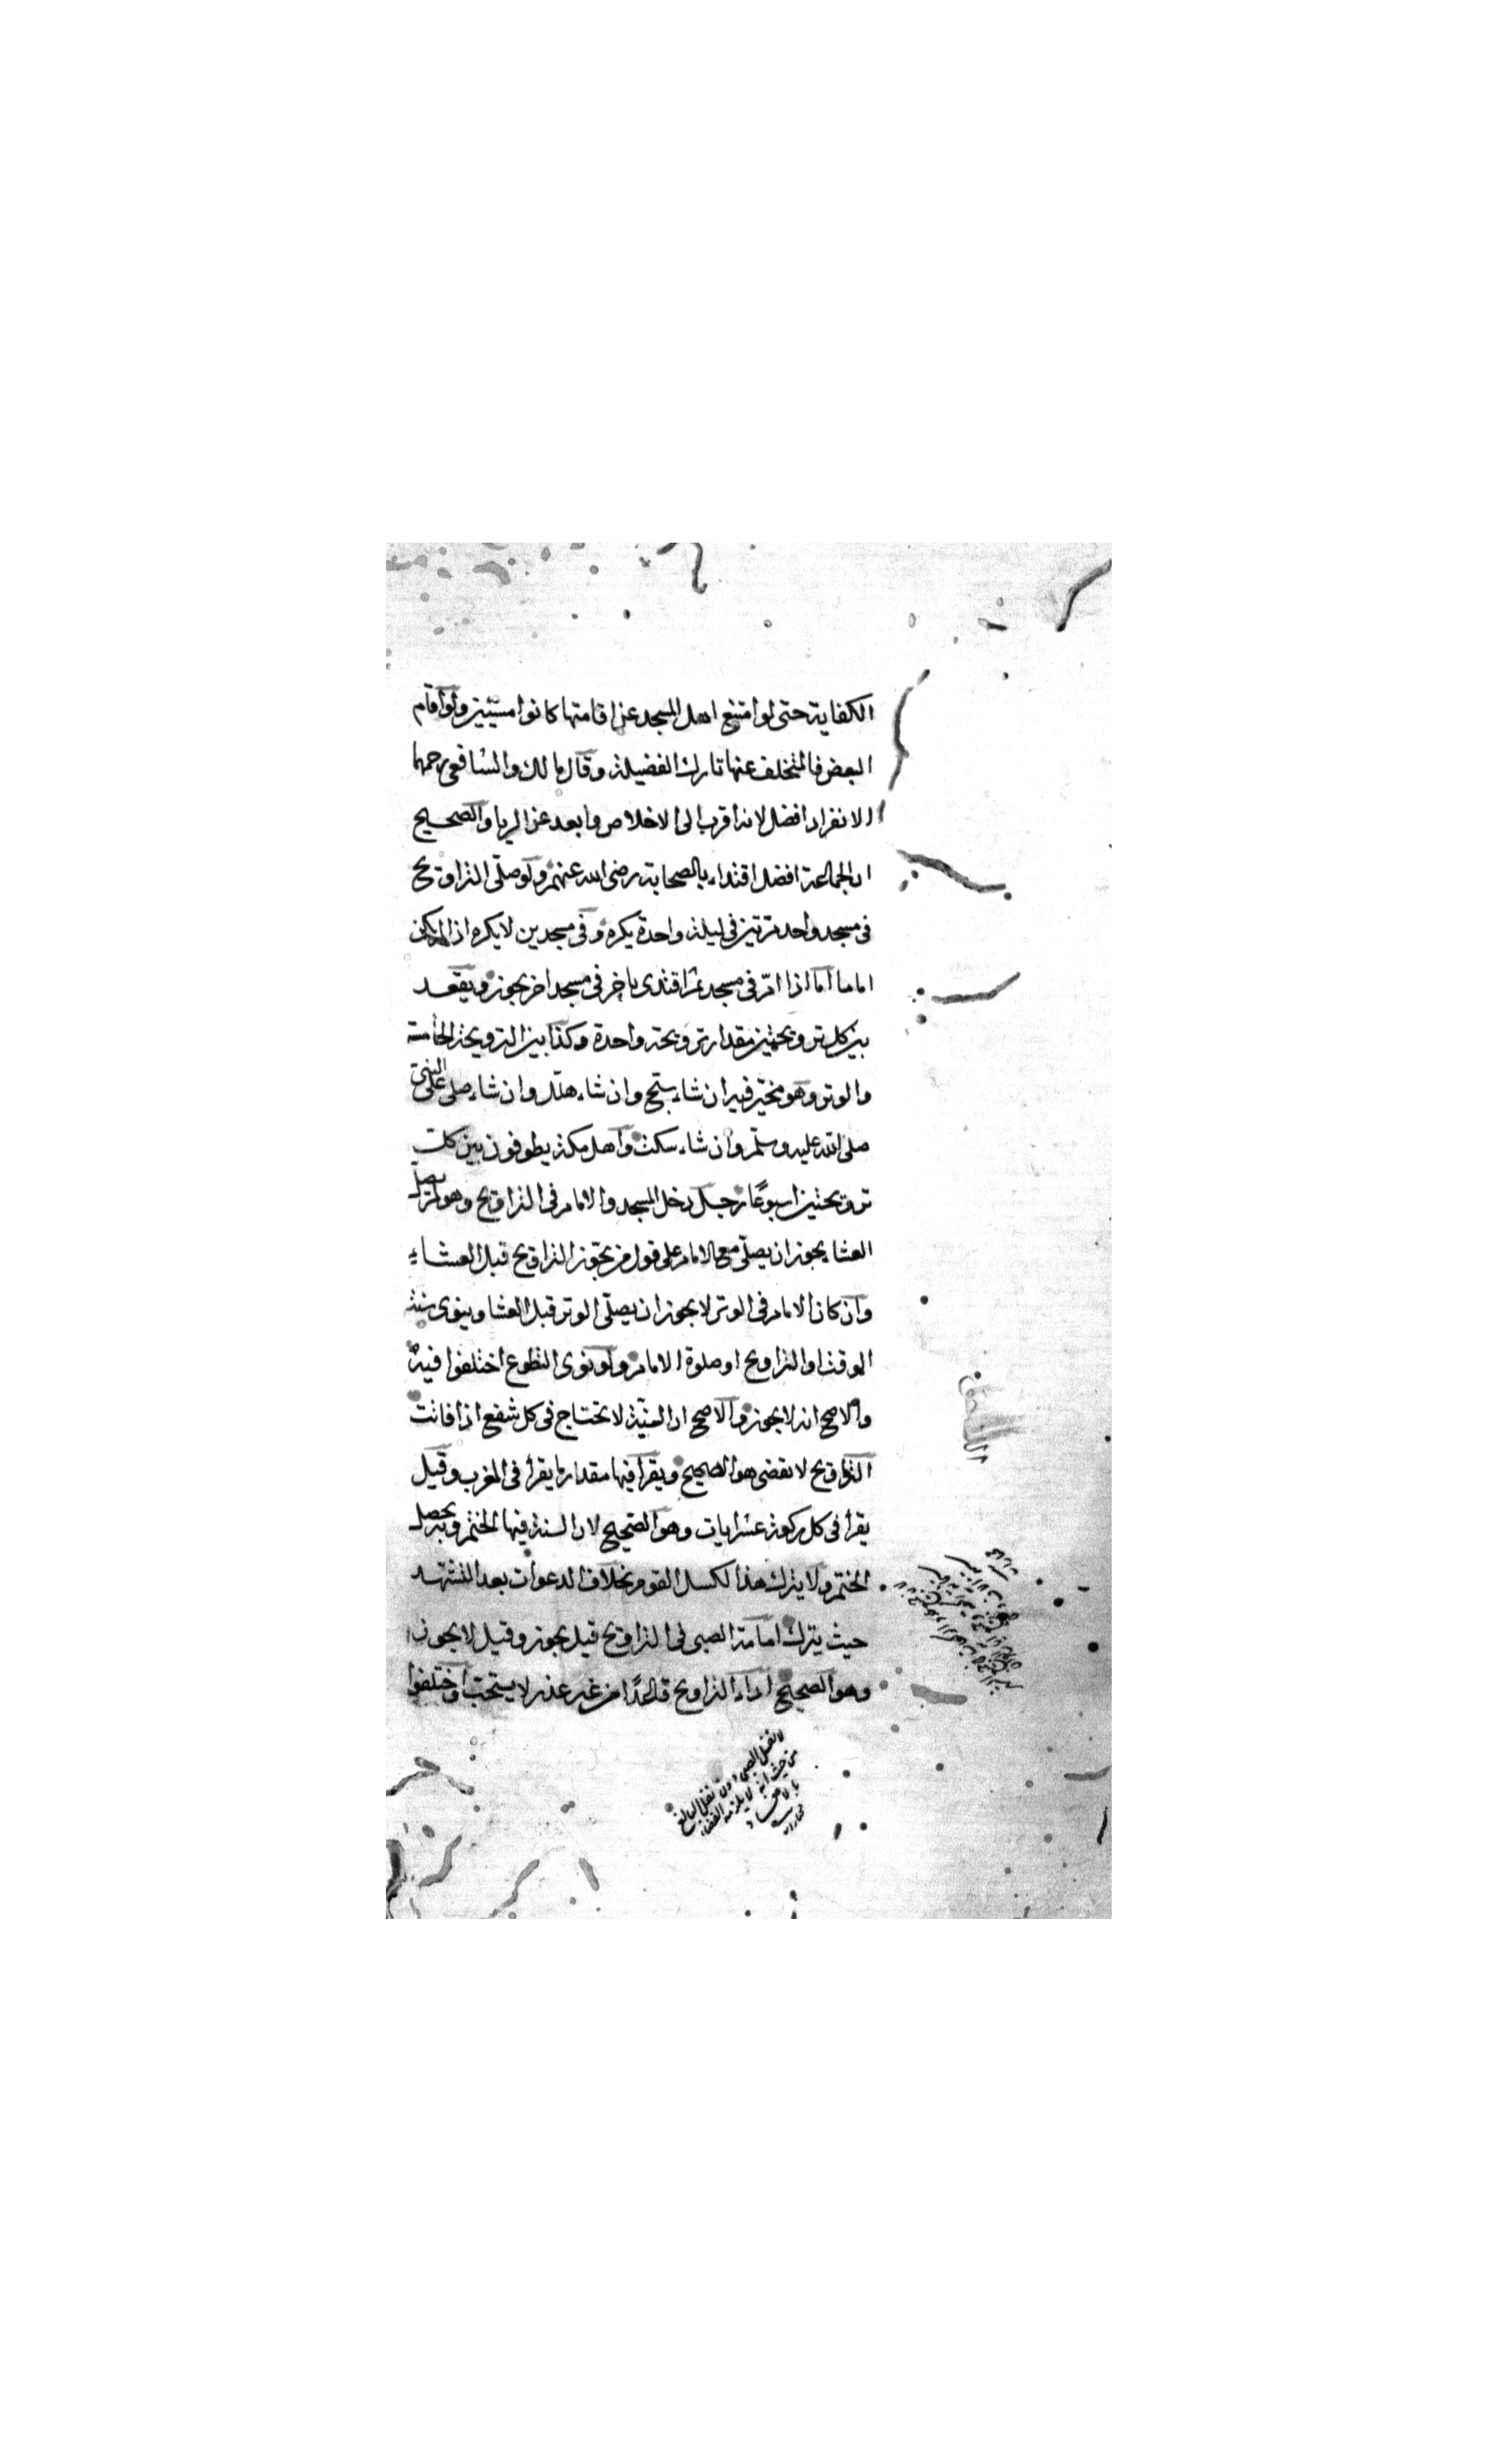 الكفاية حتى لو امتنع اهل المسجد عن اقامتها كانوا مسيئين ولو اقام
البعض فالمتخلف عنها تارك الفضيلة وقال مالك والشافعي رحمهما
الانفراد افضل لانه اقرب الى الاخلاص وابعد عن الريا والصحيح
ان الجماعة افضل اقتداء بالصحابة رضى الله عنهم ولو صلى التراويح
فى مسجد واحد مرتين فى ليلة واحدة يكره وفى مسجدين لا يكره اذا لم يكن
اماما اما اذا ام فى مسجد ثم اقتدى باخر فى مسجد اخر يجوز ويقعد
بين كل ترويحتين مقدار ترويحة واحدة وكذا بين الترويحة الخامسة
والوتر وهو مخير فيه ان شاء سبح وان شاء هلل وان شاء صلى على النبى
صلى الله عليه وسلم وان شاء سكت واهل مكة يطوفون بين كل
ترويحتين اسبوعًا رجل دخل المسجد والامام فى التراويح وهو لم يصل
العشا يجوز ان يصلى مع الامام على قول من يجوز التراويح قبل العشاء
وان كان الامام فى الوتر لا يجوز ان يصلى الوتر قبل العشا وينوى سنة
الوقت او التراويح او صلوة الامام ولو نوى التطوع اختلفوا فيه
والاصح انه لا يجوز والاصح ان النية لا تحتاج فى كل شفع اذا فاتت
التراويح لا تقضى هو الصحيح ويقرأ فيها مقدار ما يقرأ فى المغرب وقيل
يقرأ فى كل ركعة عشر ايات وهو الصحيح لان السنة فيها الختم وبه يحصل
الختم ولا يترك هذا لكسل القوم بخلاف الدعوات بعد التشهد
حيث يترك امامة الصبى فى التراويح قيل يجوز وقيل لا يجوز
وهو الصحيح اداء التراويح قاعدًا من غير عذر لا يستحب واختلفوا
لان نفل الصبى دون نفل البالغ
من حيث انه لا يلزمه القضاء
بالافساد